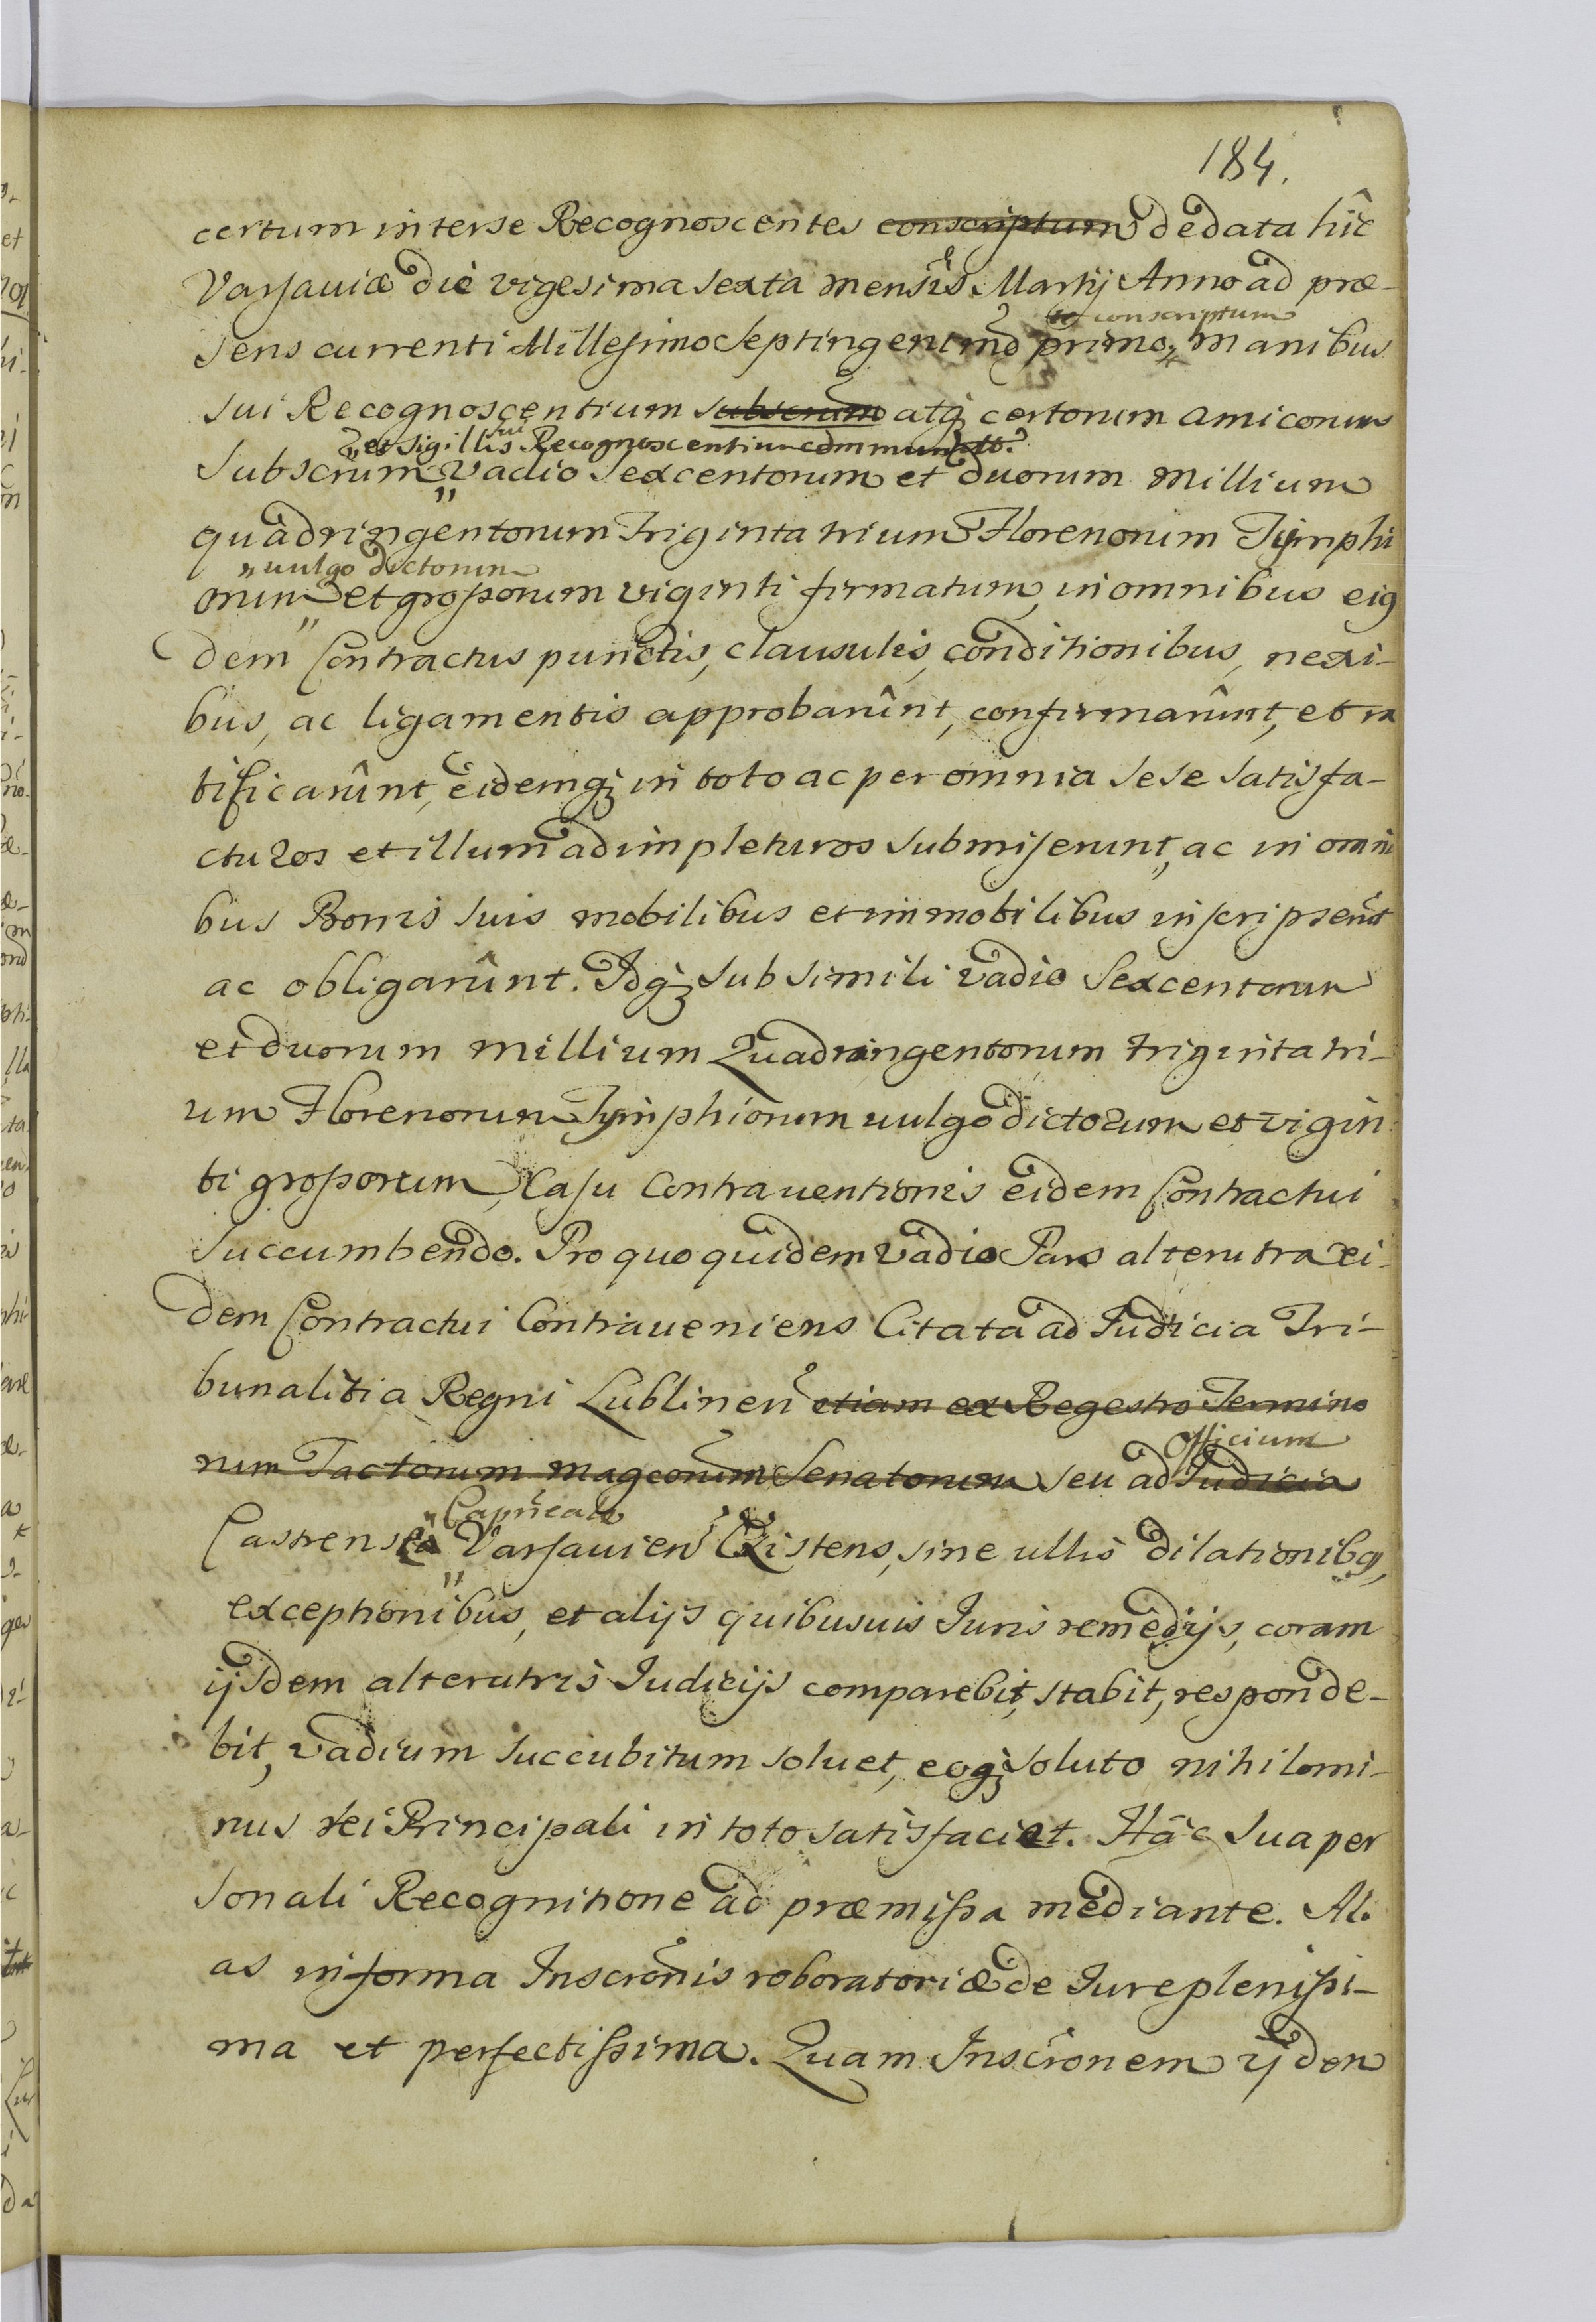 184.
certum inter se Recognoscentes conscriptum de data hîc
Varsaviæ die vigesima sexta mensis Martij Anno ad præ-
conscriptum
sens currenti Millesimo Septingentmo primo, manibus
sui Recognoscentium subscrium atq; certorum amicorum
et sigillis sui Recognoscentium communitt.
Subscrium Vadio Sexcentorum et duorum millium
quadringentorum Triginta trium Florenorum Tÿmphi
vulgo dictorum
orum et grossorum viginti firmatum, in omnibus eiq
dem Contractus punctis, clausulis, conditionibus, nexi-
bus, ac ligamentis approbarûnt, confirmarûnt, et ra
tificarûnt, eidemq; in toto ac per omnia sese satisfa-
cturos et illum adimpleturos submiserunt, ac in omni
bus Bonis suis mobilibus et immobilibus inscripserût
ac obligarûnt. Idq; sub simili vadio Sexcentorum
et duorum millium Quadringentorum triginta tri-
um Florenorum Tymphiorum vulgo dictorum et vigin
ti grossorum, Casu Contraventionis eidem Contractui
succumbendo. Pro quo quidem vadio Pars alterutra ei
dem Contractui Contraveniens Citata ad Judicia Tri-
bunalitia Regni Lublinen etiam ex Regestro Termino
Officium
rum Tactorum magcorum Senatorum seu ad Judicia
Capneale
Castrensia Varsavien Existens, sine ullis dilationibq,
exceptionibus, et alijs quibusuis Juris remedijs, coram
ijsdem alterutris Judicijs comparebit, stabit, responde-
bit, vadium succubitum soluet, eoq; soluto nihilomi-
nus rei Principali in toto satisfaciet. Hâc sua per
sonali Recognitione ad præmissa mediante. Ali
as in forma Inscronis roboratoriæ de Jure plenissi-
ma et perfectissima. Quam Inscronem ijdem